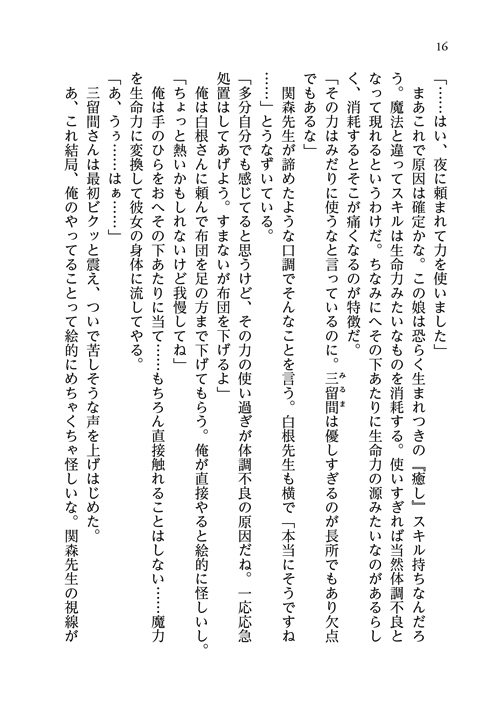 16
「……はい、夜に頼まれて力を使いました」
まあこれで原因は確定かな。この娘は恐らく生まれつきの『癒し』スキル持ちなんだろ
う。魔法と違ってスキルは生命力みたいなものを消耗する。使いすぎれば当然体調不良と
なって現れるというわけだ。ちなみにへその下あたりに生命力の源みたいなのがあるらし
く、消耗するとそこが痛くなるのが特徴だ。
「その力はみだりに使うなと言っているのに。三留間は優しすぎるのが長所でもあり欠点
みるま
でもあるな」
関森先生が諦めたような口調でそんなことを言う。白根先生も横で「本当にそうですね
……」とうなずいている。
「多分自分でも感じてると思うけど、その力の使い過ぎが体調不良の原因だね。一応応急
処置はしてあげよう。すまないが布団を下げるよ」
俺は白根さんに頼んで布団を足の方まで下げてもらう。俺が直接やると絵的に怪しいし。
「ちょっと熱いかもしれないけど我慢してね」
俺は手のひらをおへその下あたりに当て……もちろん直接触れることはしない……魔力
を生命力に変換して彼女の身体に流してやる。
「あ、うぅ……はぁ……」
三留間さんは最初ビクッと震え、ついで苦しそうな声を上げはじめた。
あ、これ結局、俺のやってることって絵的にめちゃくちゃ怪しいな。関森先生の視線が